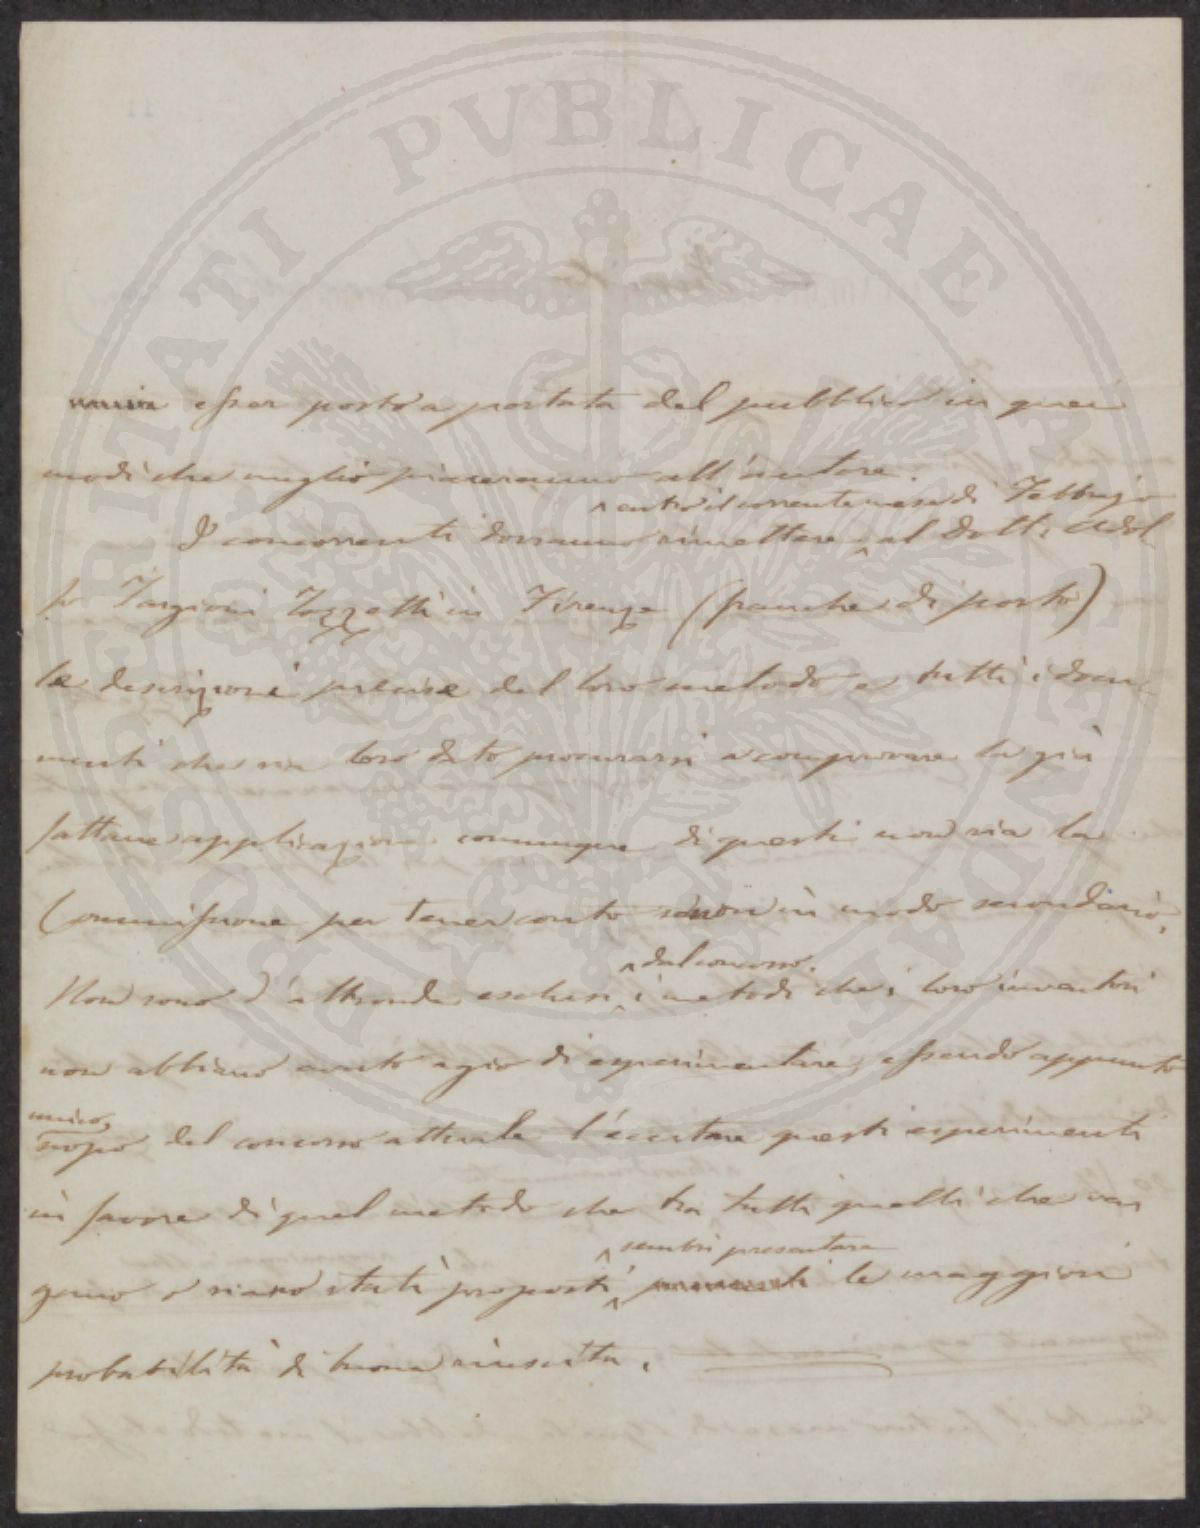 esser posto a portata del pubblico in quei
modi che meglio piaceranno all'autore.
entro il corrente mese di Febbrajo
I concorrenti dovranno rimettere al Dott. Adol
fo Targioni Tozzetti in Firenze (franche di porto)
le descrizioni precise del loro metodo e tutti i docu
menti che sia loro dato procurarsi a comprovare la già
fattane applicazione comunque di questi non sia la
Commissione per tener conto se non in modo secondario,
dal concorso.
Non sono d'altronde esclusi i metodi che i loro inventori
non abbiano avuto agio di esperimentare, essendo appunto
unico,
scopo del concorso attuale l'eccitare questi esperimenti
in favore di quel metodo che tra tutti quelli che ven
sembri presentare
gano o siano stati proposti le maggiori
probabilità di buona riuscita.
PROSPERITATI PUBLICAE AUGENDAE